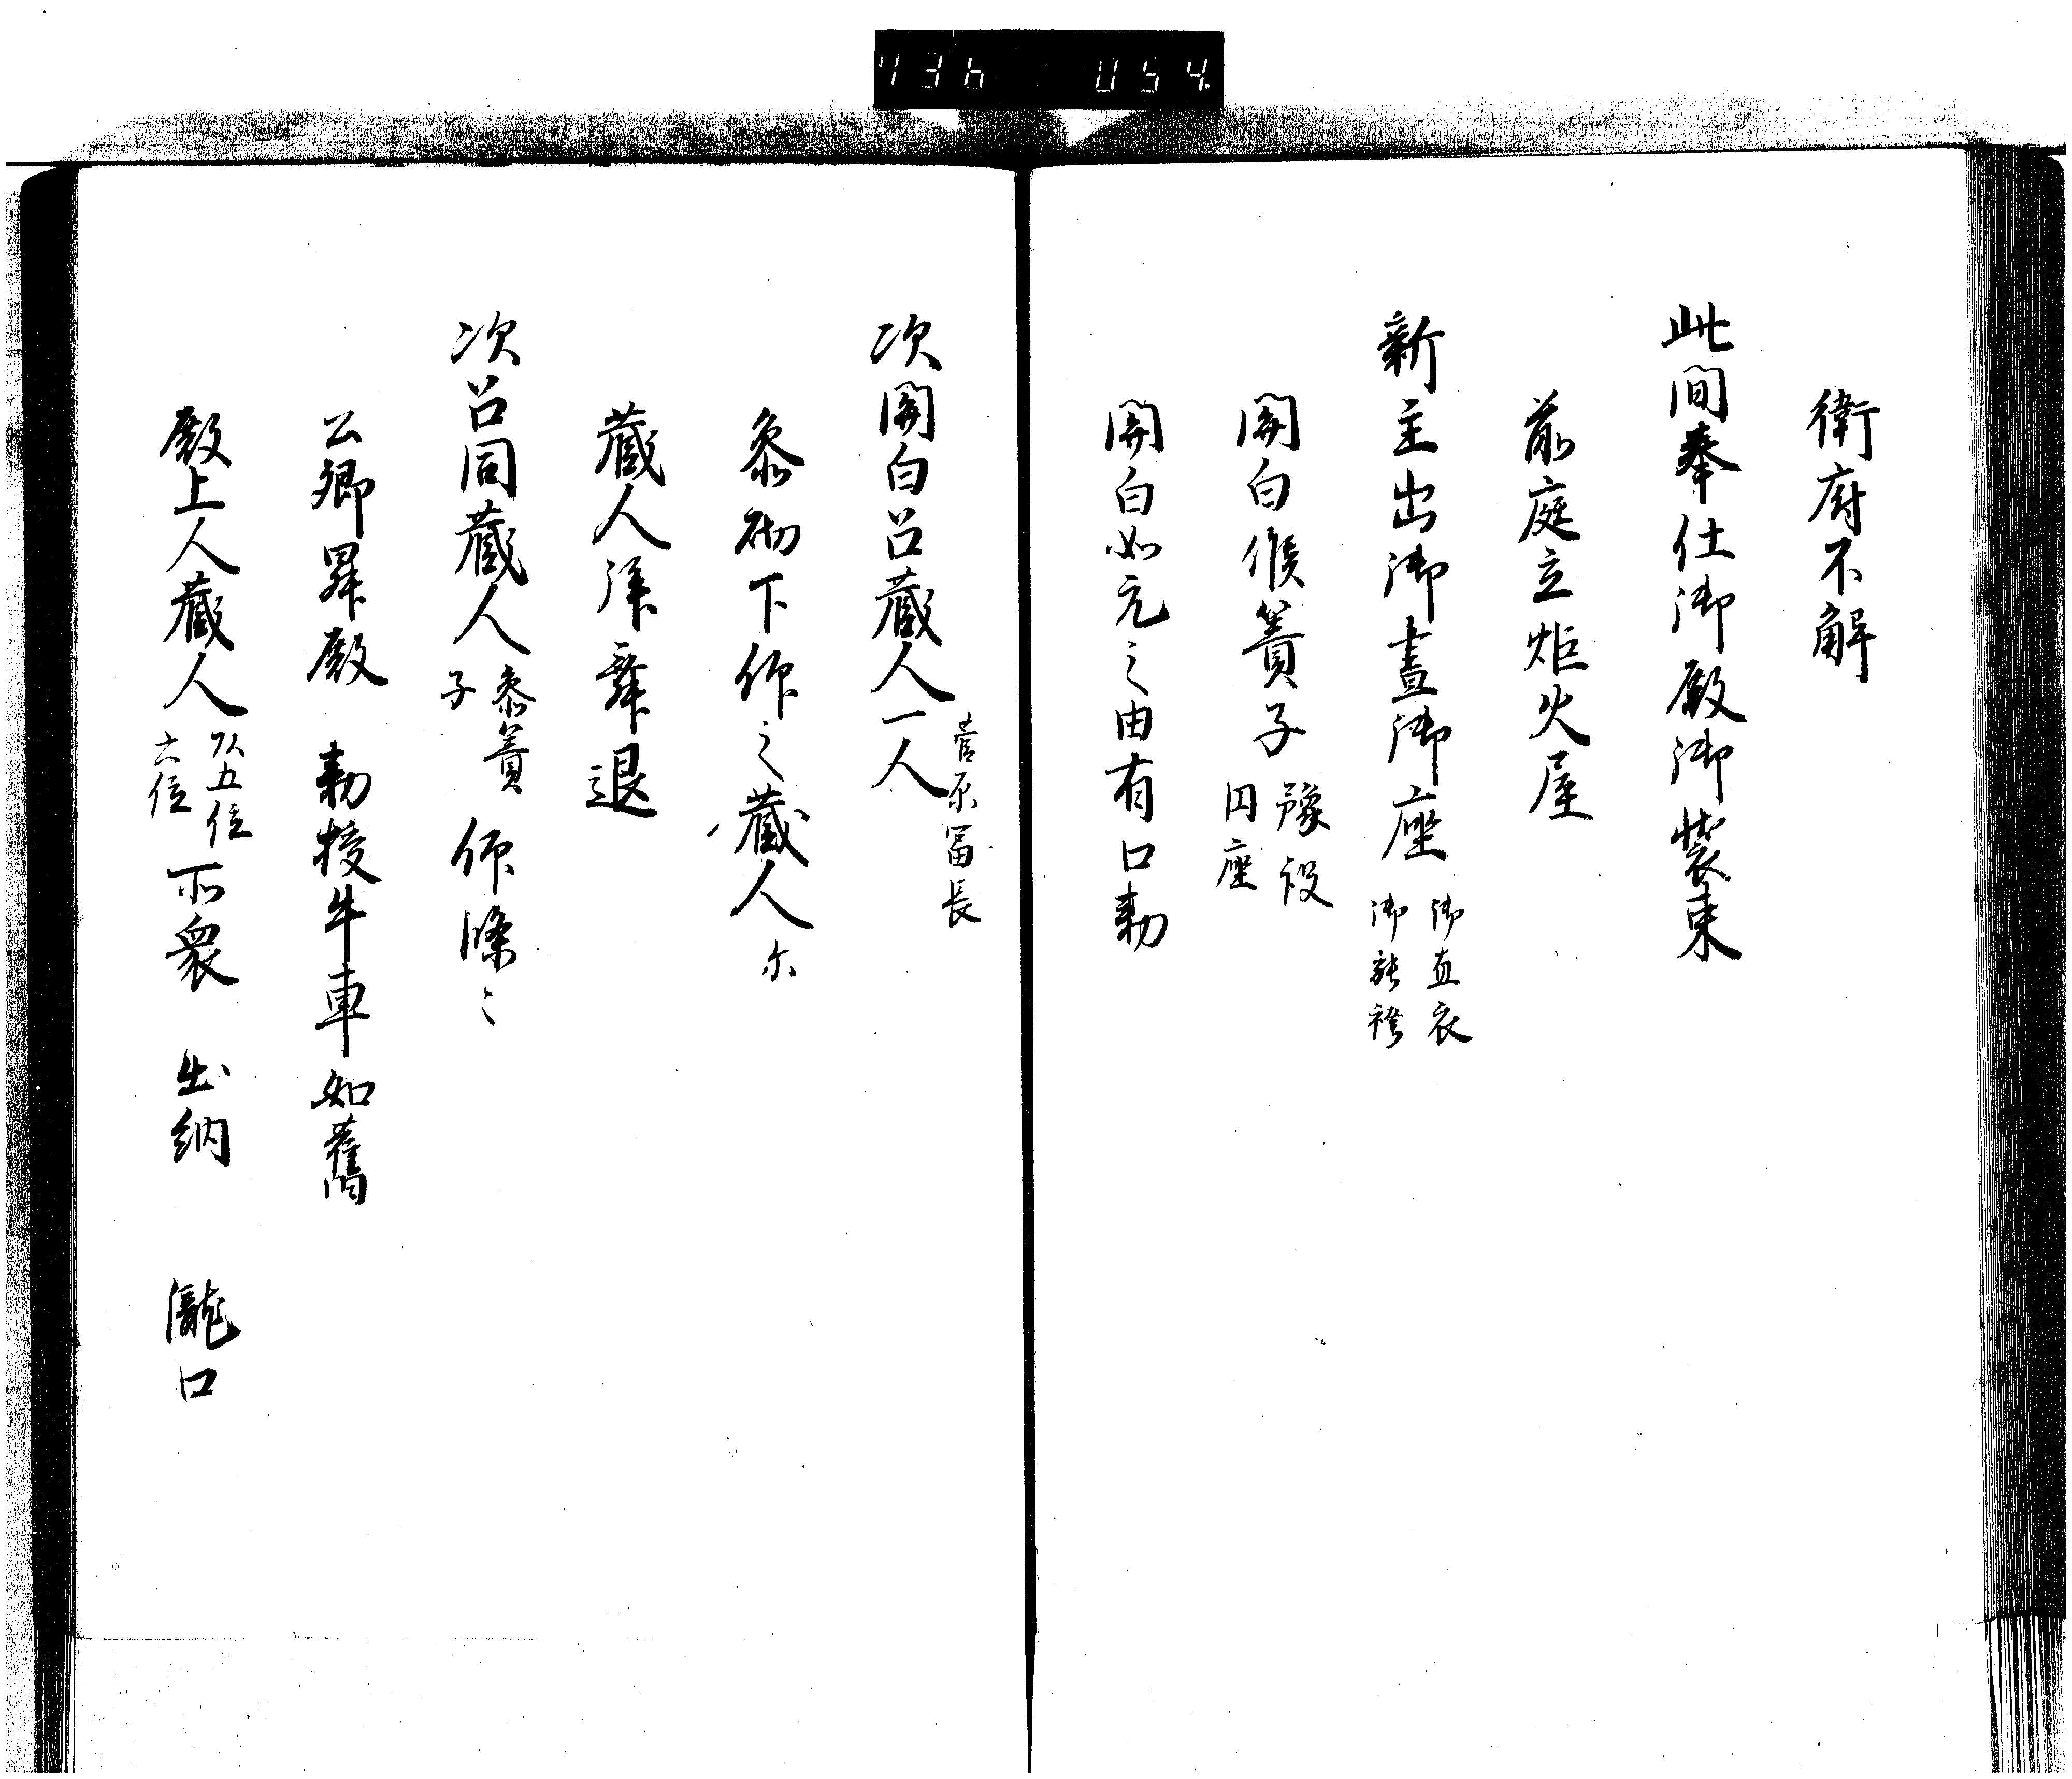 736 054
衛府不解
此間奉仕御殿御装束
前庭立炬火屋
新主出御昼御座 御直衣 御張袴
関白候簀子 豫設 円座
関白如元之由有口勅
次関白召蔵人一人 菅原冨長
参砌下仰之蔵人尓
蔵人拝舞退
次召同蔵人 参簀 子 仰條〻
公卿昇殿 勅授牛車如舊
殿上人蔵人 以五位 六位 所衆 出納 瀧口